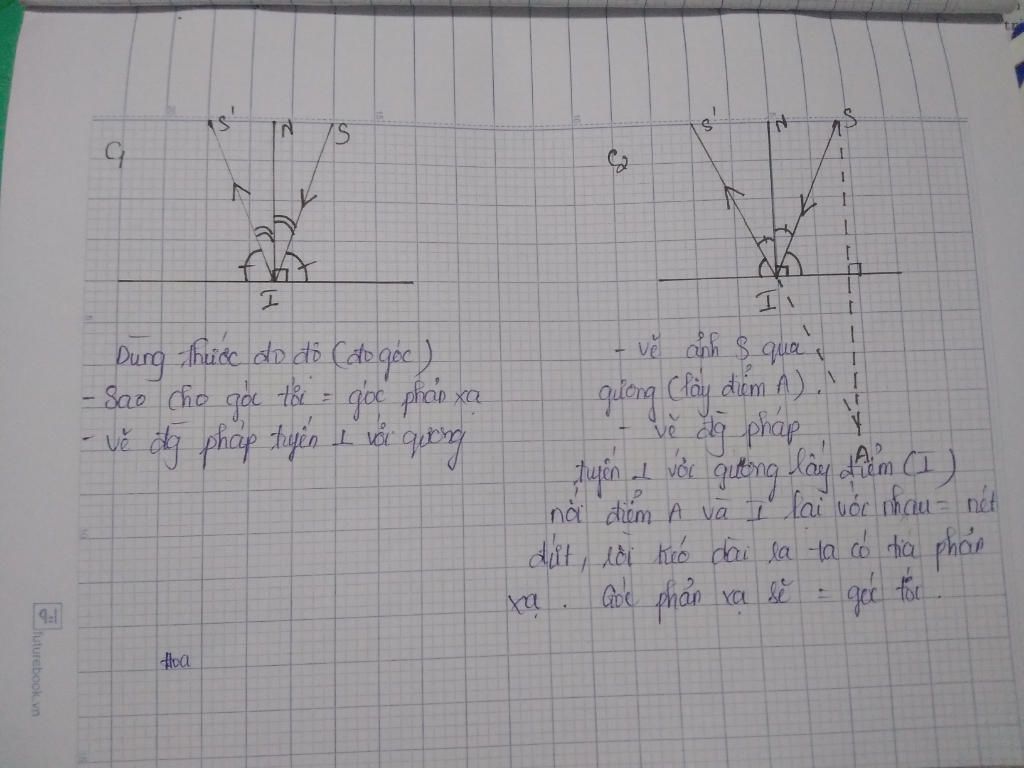 C1
S' N S
I
Dùng thước đo độ (đo góc)
- Sao cho góc tới = góc phản xạ
- vẽ đg pháp tuyến ⊥ với gương
C2
S' N S
I
- vẽ ảnh S qua
gương (lấy điểm A).
- vẽ đg pháp
A
tuyến ⊥ với gương lấy điểm (I)
nối điểm A và I lại với nhau = nét
đứt, rồi kéo dài ra ta có tia phản
xạ. Góc phản xạ sẽ = góc tới.
Hoa
futurebook.vn